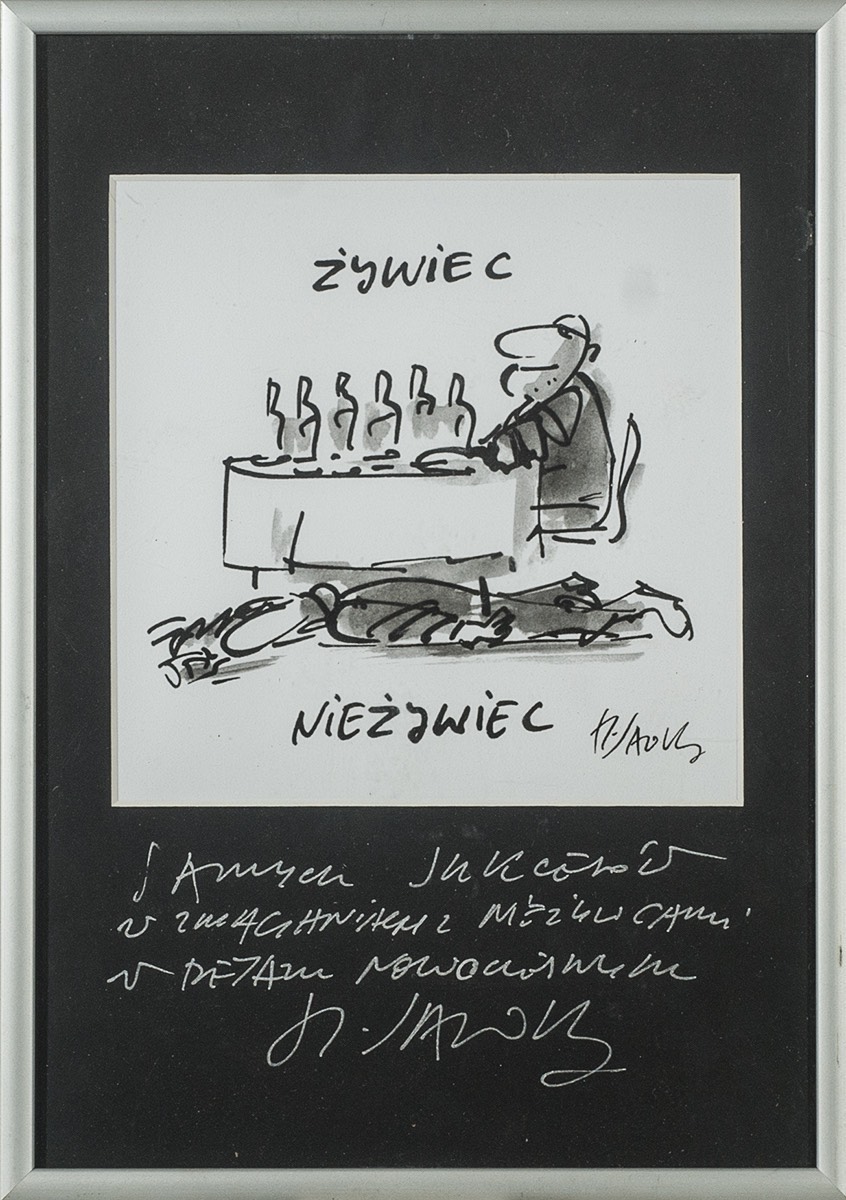 ŻYWIEC
NIEŻYWIEC
H. SAWKA
SAMYCH SUKCESÓW
W ZMAGANIACH Z NIEŻYWCAMI
W DETALU NOWOCZESNYM
H. SAWKA